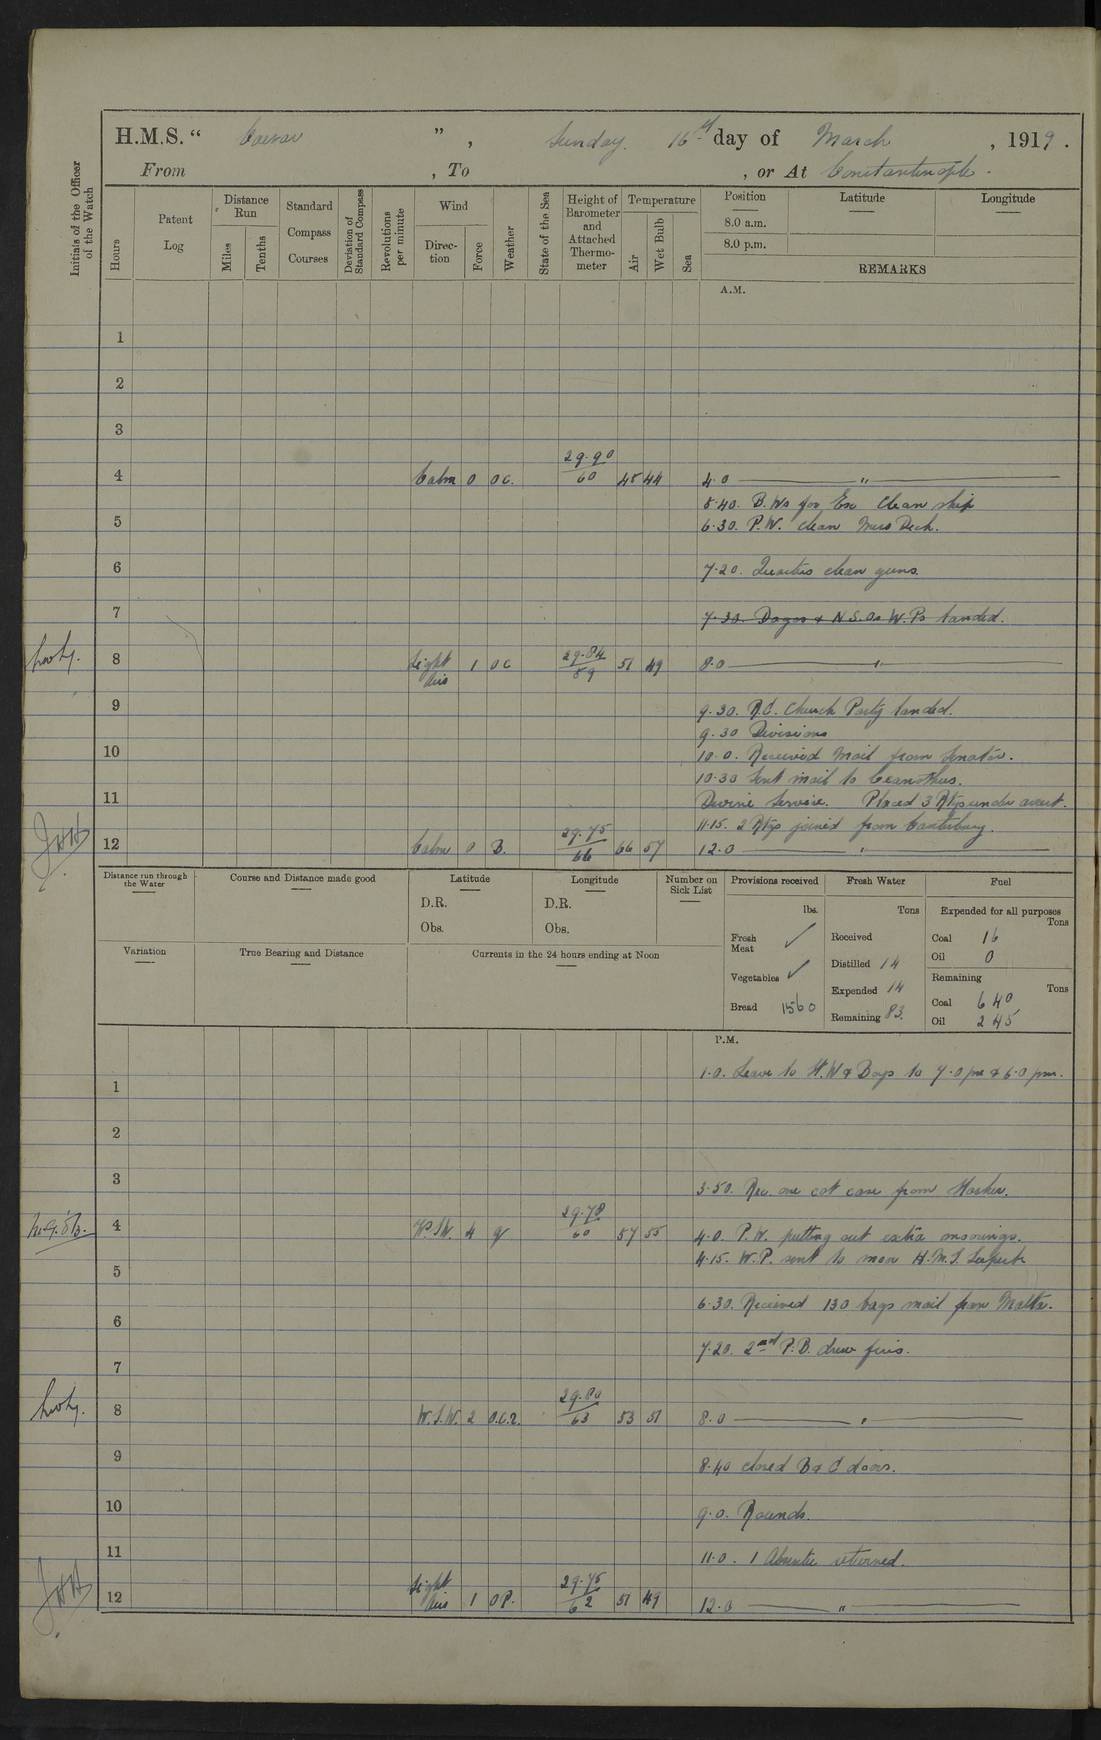 H.M.S. " Caesar ", Sunday 16th day of March, 1919.
From , To , or At Constantinople.
Initials of the Officer of the Watch
Hours
Patent Log
Distance Run
Miles
Tenths
Standard Compass Courses
Deviation of Standard Compass
Revolutions per minute
Wind
Direction
Force
Weather
State of the Sea
Height of Barometer and Attached Thermometer
Temperature
Air
Wet Bulb
Sea
Position
Latitude
Longitude
8.0 a.m.
8.0 p.m.
REMARKS
A.M.
1
2
3
4 Calm 0 O C. 29.90/60 45 44 4.0 "
5.40. B. Ws for Ex. Clean ship
5 6.30. P.W. clean Mess Deck.
6 7.20. Quarters clean guns.
7 7.30. W.Ps landed.
8 Light Airs 1 O C 29.84/59 51 49 8.0 "
9 9.30. R.C. Church Party landed.
9.30 Divisions
10 10.0. Received Mail from Senator.
10.30 Sent mail to Ceanothus.
11 Divine Service. Placed 3 Rtgs under arrest.
11.15. 2 Rtgs joined from Canterbury.
12 Calm 0 B. 29.75/66 66 57 12.0 "
Distance run through the Water
Course and Distance made good
Latitude
D.R.
Obs.
Longitude
D.R.
Obs.
Number on Sick List
Provisions received
lbs.
Fresh Meat ✓
Vegetables ✓
Bread 1560
Fresh Water
Tons
Received
Distilled 14
Expended 14
Remaining 83.
Fuel
Expended for all purposes
Tons
Coal 16
Oil 0
Remaining
Tons
Coal 640
Oil 245
Variation
True Bearing and Distance
Currents in the 24 hours ending at Noon
P.M.
1.0. Leave to W & Boys to 7.0 pm & 6.0 pm.
1
2
3
3.50. Rec. one cot case from
4 W.S.W. 4 q 29.78/60 57 55 4.0. P.W. putting out extra moorings.
4.15. W.P. sent to moor H.M.S.
5
6.30. Received 130 bags mail from Malta.
6
7.20. 2nd P.B. drew fires.
7
8 W.S.W. 2 O.C.R. 29.80/63 53 51 8.0 "
9 8.40 closed B & C doors.
10 9.0. Rounds.
11 11.0. 1 Absentee returned.
12 Light Airs 1 O P. 29.75/62 51 49 12.0 "